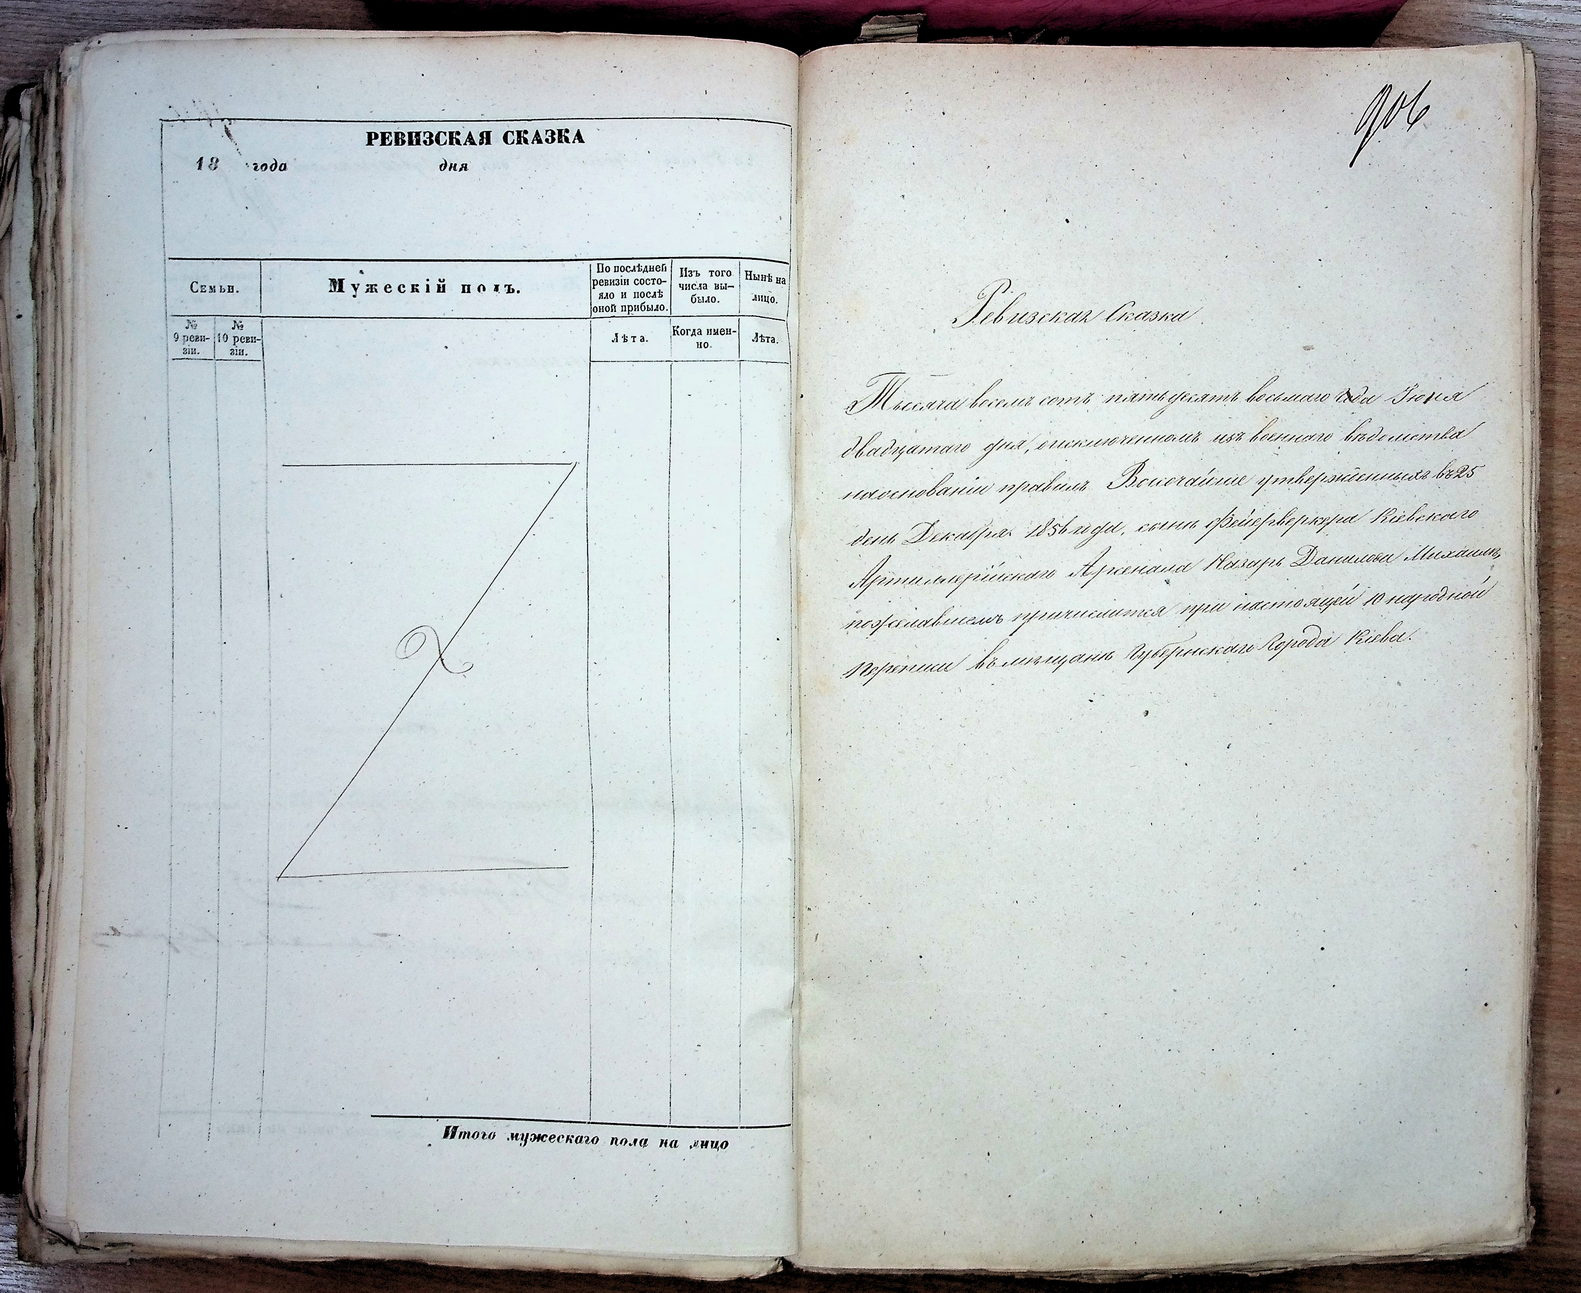 РЕВИЗСКАЯ СКАЗКА
18 года дня
Семьи.
Мужескій полъ.
По послѣдней
ревизіи состо-
яло и послѣ
оной прибыло.
Изъ того
числа вы-
было.
Нынѣ на
лицо.
№
9 реви-
зіи.
№
10 реви-
зіи.
Лѣта.
Когда имен-
но.
Лѣта.
Итого мужескаго пола на лицо
906
Ревизская Сказка
Тысяча восемь сотъ пятьдесятъ восьмаго года Іюня
двадцатаго дня, о исключенномъ изъ военнаго вѣдомства
наосновании правилъ Высочайше утвержденныхъ въ 25
день Декабря 1856 года, сынѣ Фейерверкера Кіевскаго
Артиллерійскаго Арсенала Назарѣ Данилова
пожелавшемъ причислится при настоящей 10 народной
Переписи въ мѣщане Губернскаго Города Кіева.